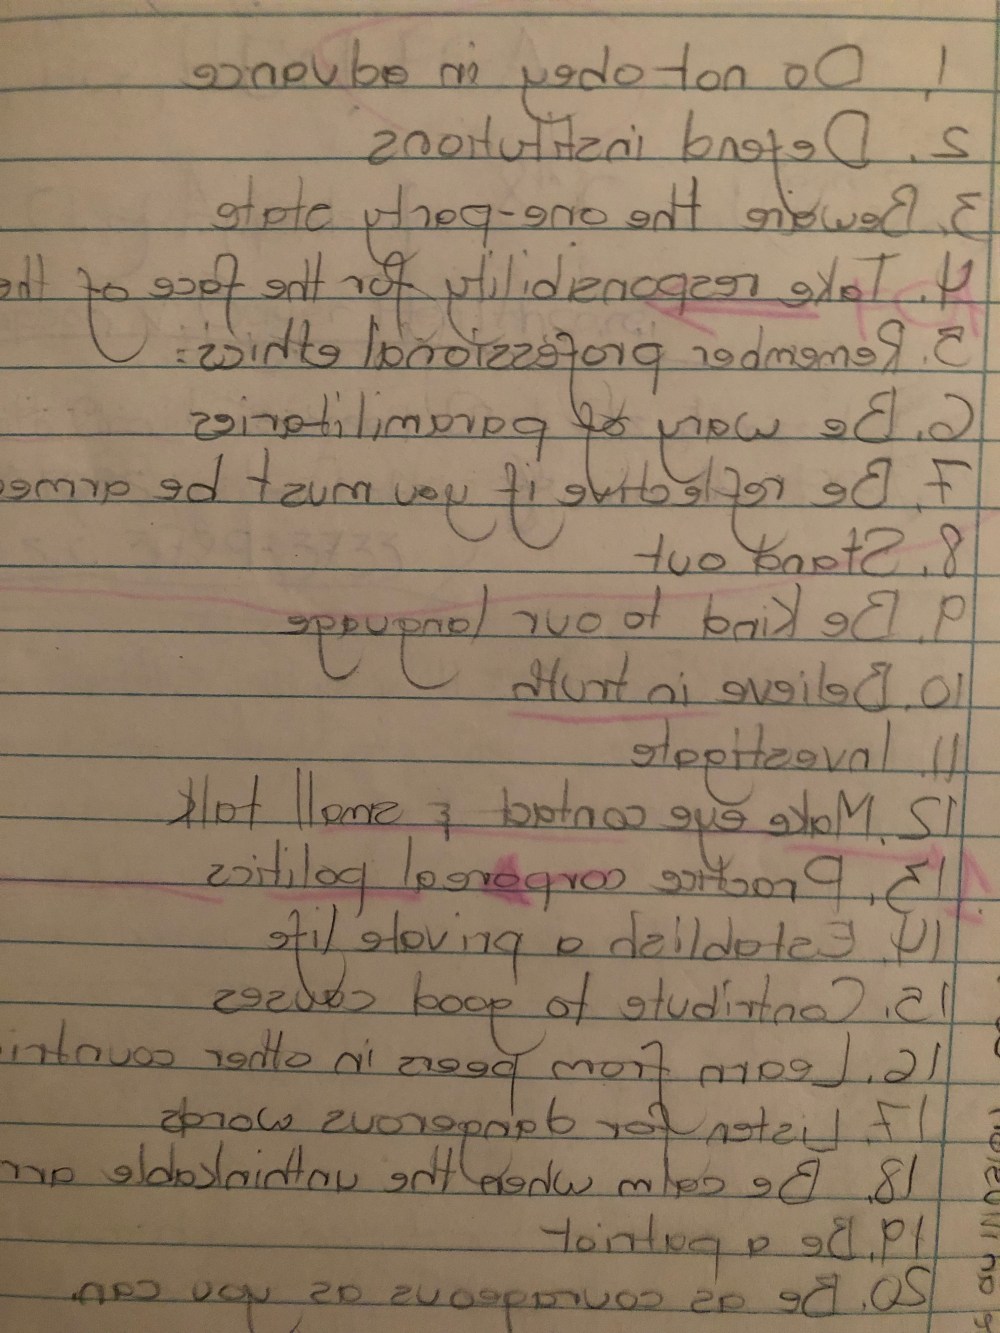 1. Do not obey in advance
2. Defend institutions
3. Beware the one-party state
4. Take responsibility for the face of the
5. Remember professional ethics:
6. Be wary of paramilitaries
7. Be reflective if you must be arme
8. Stand out
9. Be kind to our language
10. Believe in truth
11. Investigate
12. Make eye contact & small talk
13. Practice corporeal politics
14. Establish a private life
15. Contribute to good causes
16. Learn from peers in other countri
17. Listen for dangerous words
18. Be calm when the unthinkable arr
19. Be a patriot
20. Be as courageous as you can